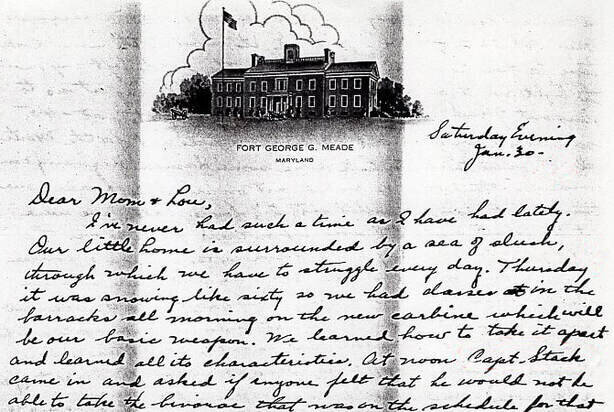 FORT GEORGE G. MEADE
MARYLAND
Saturday Evening
Jan. 30-
Dear Mom & Lou,
I've never had such a time as I have had lately.
Our little home is surrounded by a sea of slush,
through which we have to struggle every day. Thursday
it was snowing like sixty so we had classes in the
barracks all morning on the new carbine which will
be our basic weapon. We learned how to take it apart
and learned all its characteristics. At noon Capt. Stack
came in and asked if anyone felt that he would not be
able to take the bivouac that was on the schedule for that